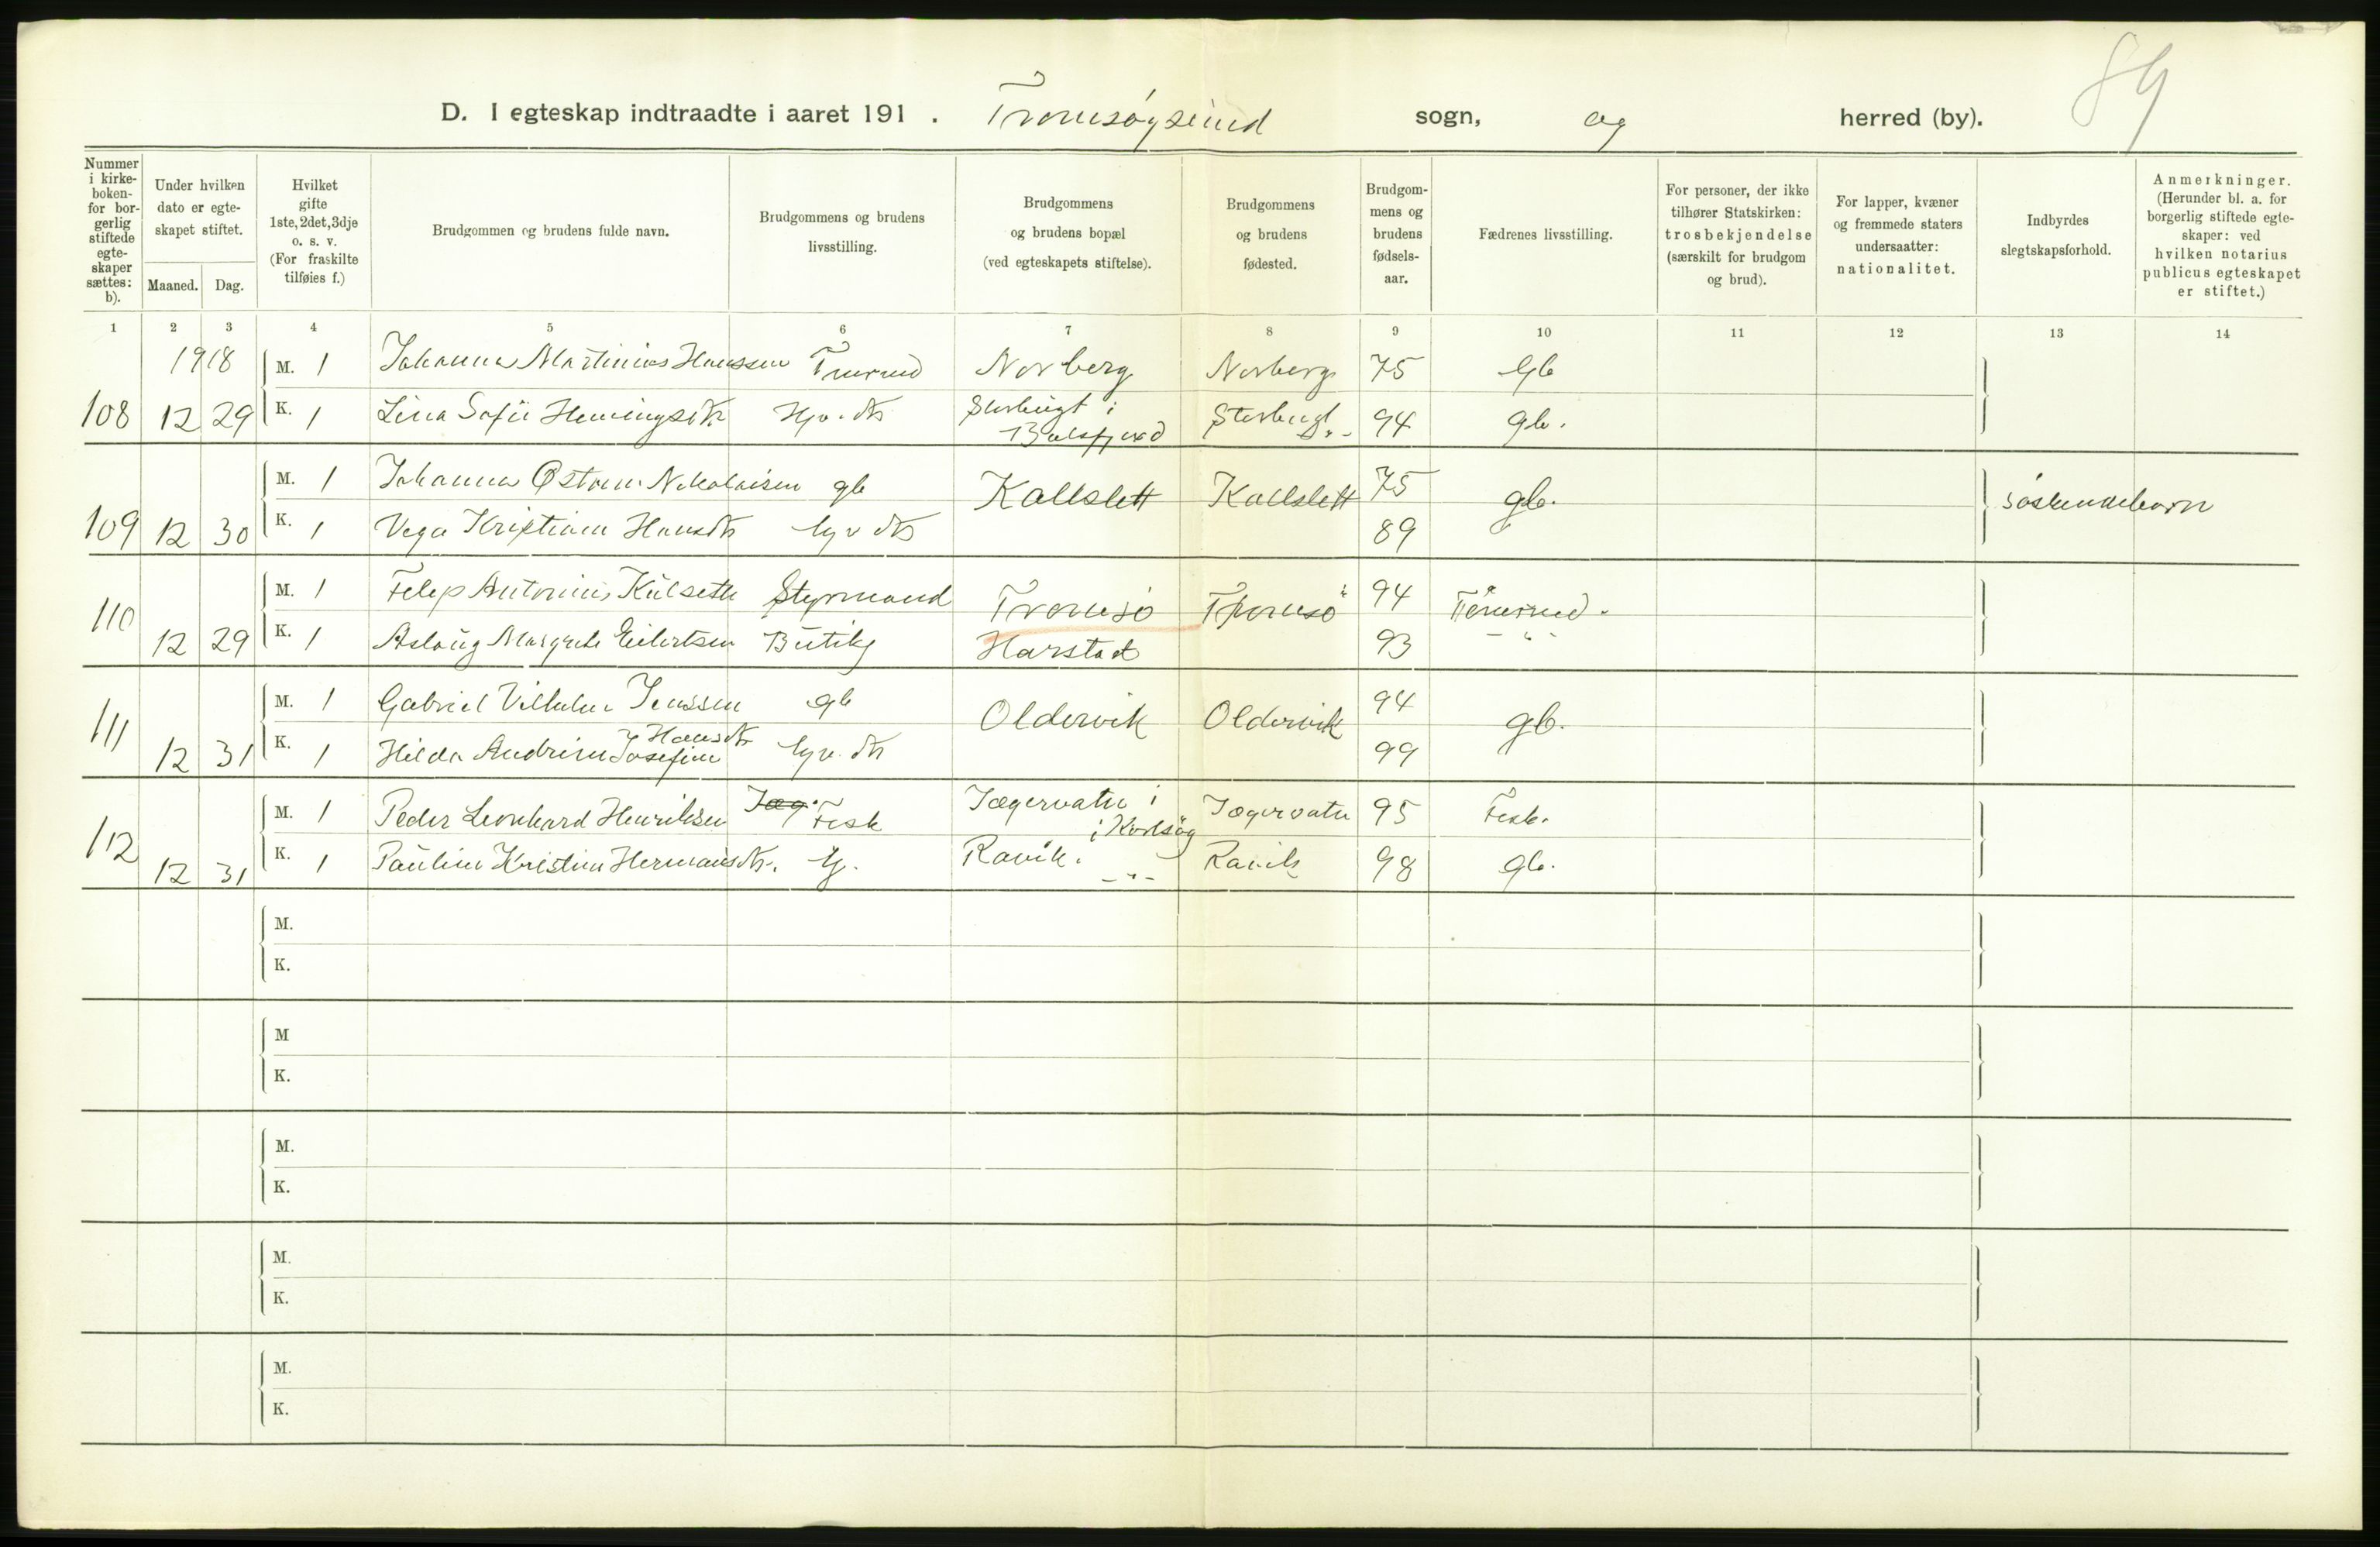 89
D. I egteskap indtraadte i aaret 191 . Tromsøysund sogn, og herred (by).
Nummer i kirke-boken- for bor-gerlig stiftede egte-skaper sættes: b).
Under hvilken dato er egte-skapet stiftet.
Maaned. Dag.
Hvilket gifte 1ste, 2det, 3dje o. s. v. (For fraskilte tilføies f.)
Brudgommen og brudens fulde navn.
Brudgommens og brudens livsstilling.
Brudgommens og brudens bopæl (ved egteskapets stiftelse).
Brudgommens og brudens fødested.
Brudgom-mens og brudens fødsels-aar.
Fædrenes livsstilling.
For personer, der ikke tilhører Statskirken: trosbekjendelse (særskilt for brudgom og brud).
For lapper, kvæner og fremmede staters undersaatter: nationalitet.
Indbyrdes slegtskapsforhold.
Anmerkninger. (Herunder bl. a. for borgerlig stiftede egte-skaper: ved hvilken notarius publicus egteskapet er stiftet.)
1 2 3 4 5 6 7 8 9 10 11 12 13 14
1918 M. 1 Johannes Martinius Hanssen Norberg Norberg 75 Gb
108 12 29 K. 1 Lina Sofie Hemingsdtr Hjv. dtr Storbugt i Balsfjord Storbugt -"- 94 gb.
M. 1 Johannes Østrem Nikolaisen gb Kallslett Kallslett 75 gb. Søskendebarn
109 12 30 K. 1 Vega Kristiane Hansdtr hjv dtr 89
110 M. 1 Filip Antonius Kulseth Styrmand Tromsø Tromsø 94 Tømrmd.
12 29 K. 1 Aslaug Margrete Eilertsen Butikj Harstad 93 - " -
111 M. 1 Gabriel Vilhelm Jenssen gb Oldervik Oldervik 94 gb.
12 31 K. 1 Hilda Andrine Josefine Hansdtr hjv. dtr 99
112 M. 1 Peder Leonhard Henriksen Jæg. Fisk Jægervatn i i Karlsøy Jægervatn 95 Fisk.
12 31 K. 1 Pauline Kristine Hermansdtr. hj. Ravik. -"- Ravik 98 gb.
M.
K.
M
K.
M.
K.
M.
K.
M.
K.